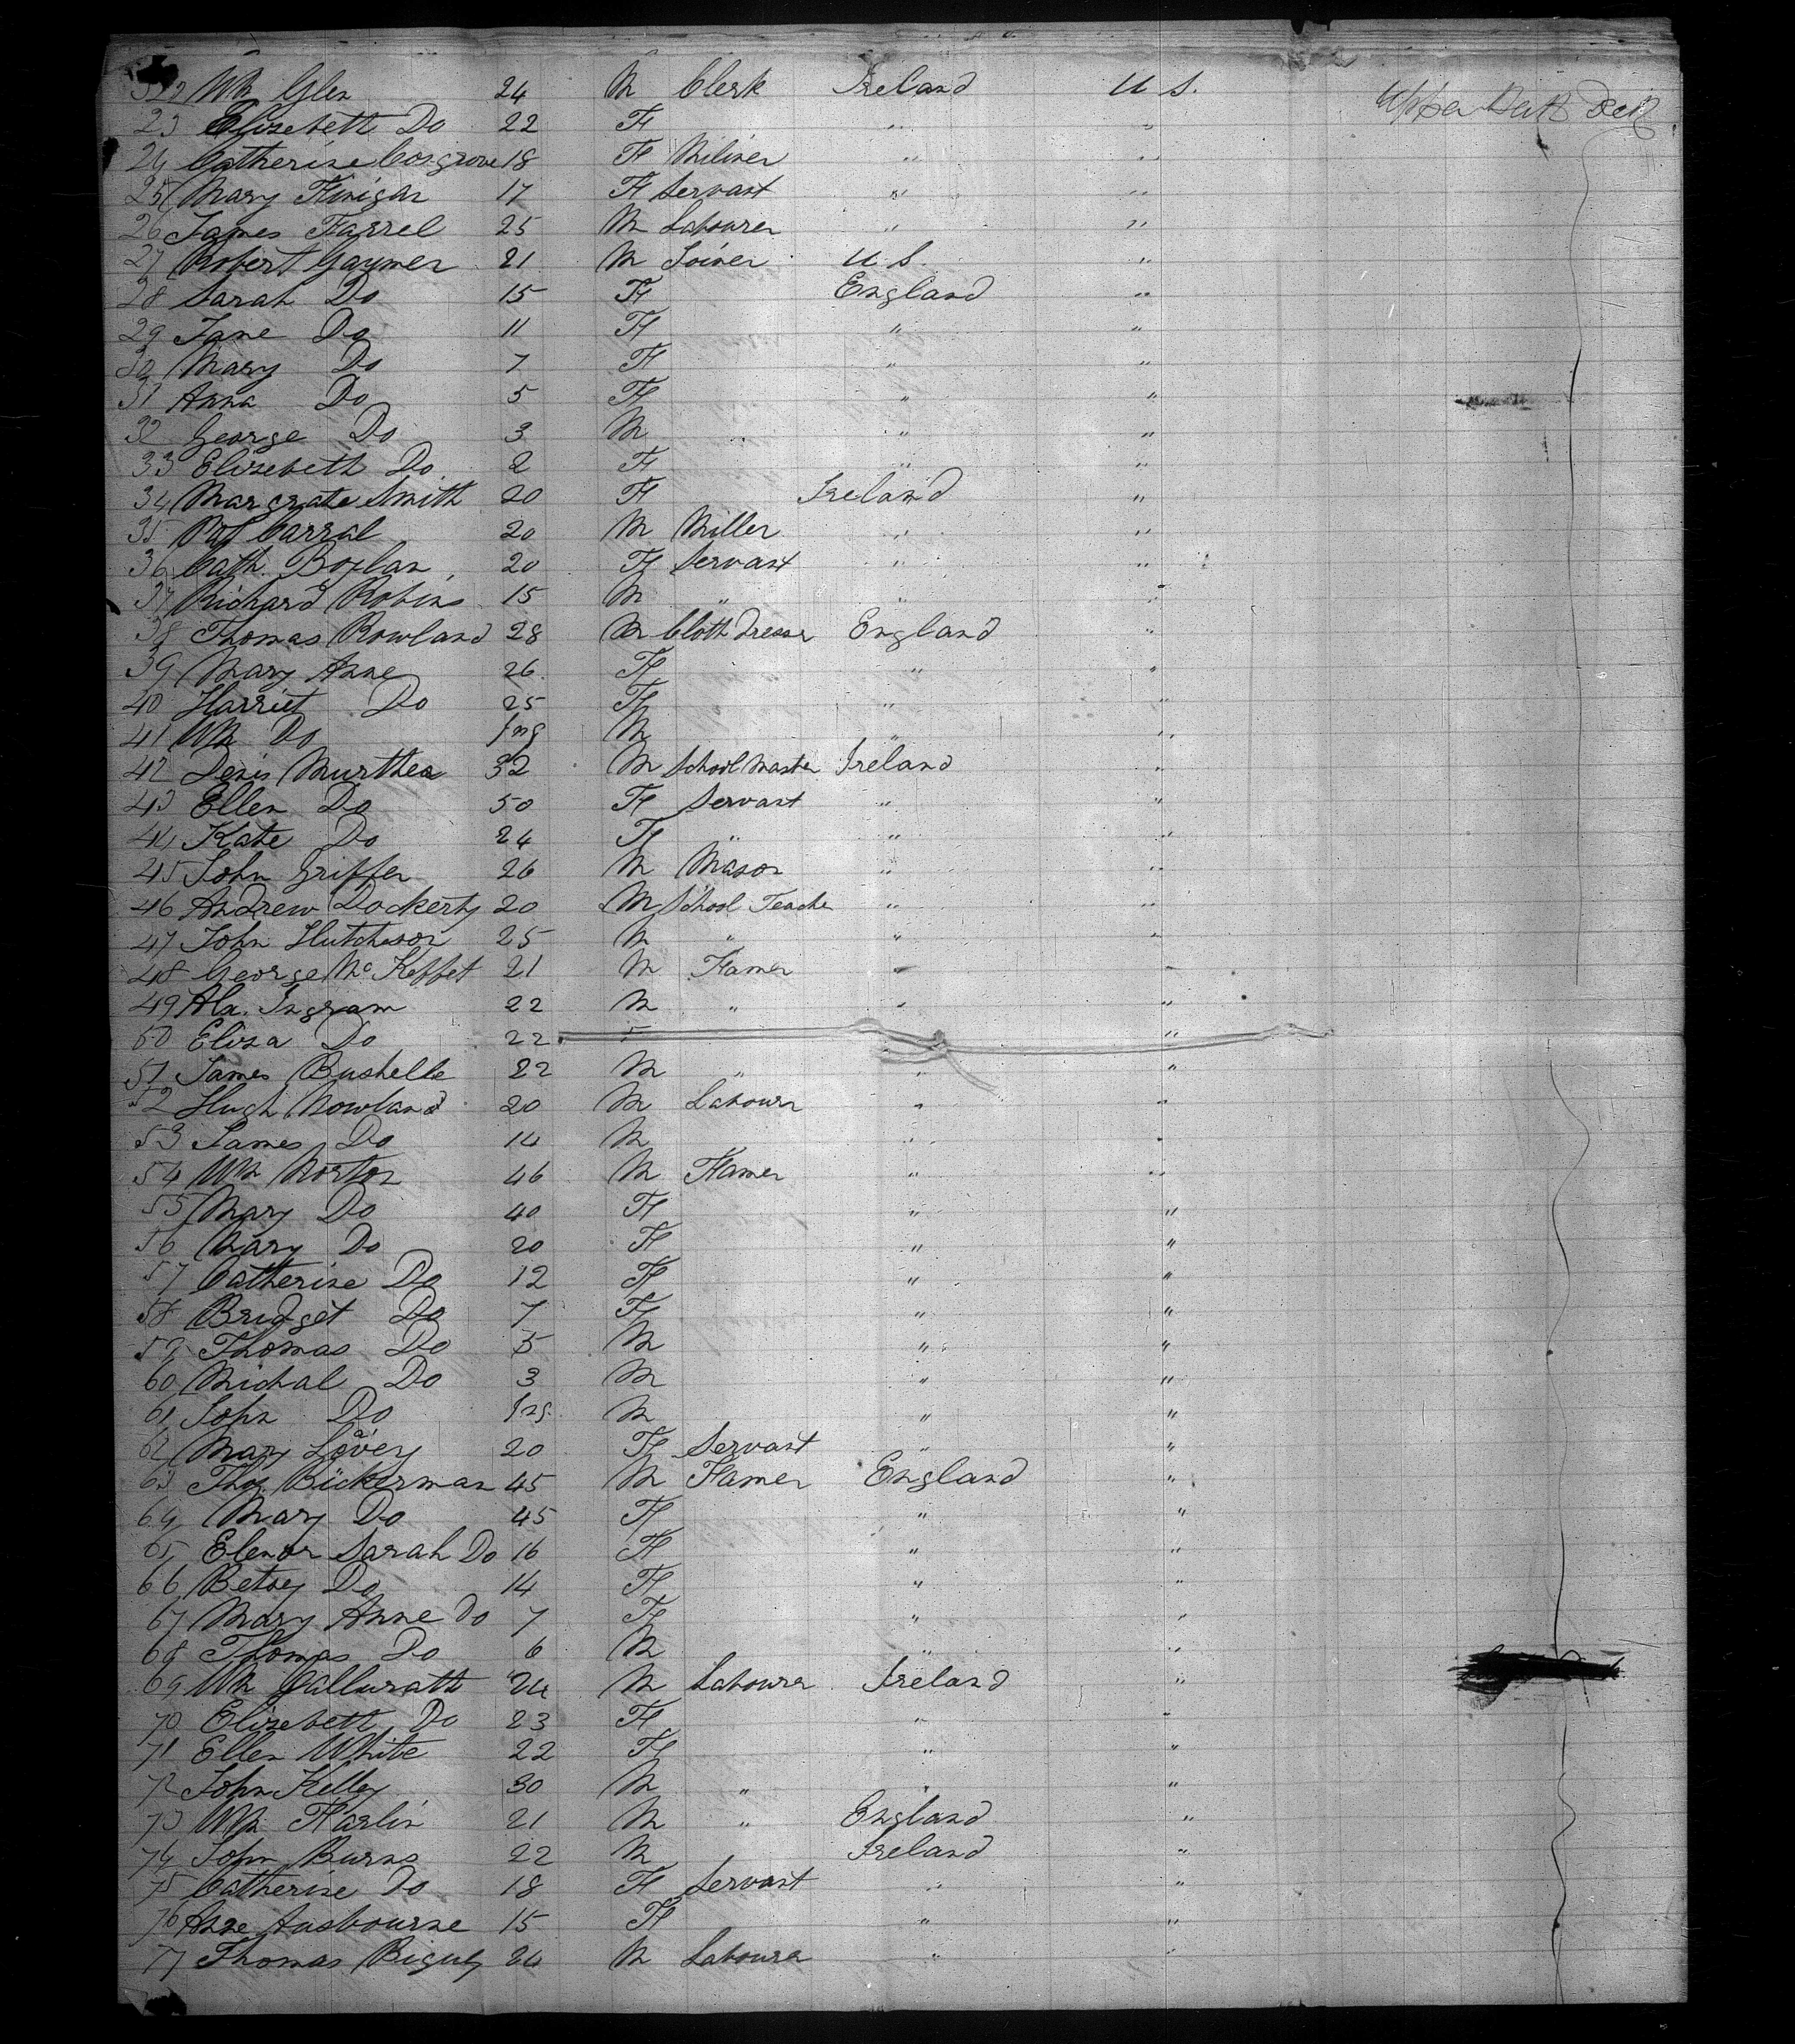 522 Wm Glen 24 M Clerk Ireland U S. Upper Deck
23 Elizebeth Do 22 F " "
24 Catherine Cosgrove 18 F Miliner " "
25 Mary Finigan 17 F Servant " "
26 James Farrel 25 M Labourer " "
27 Robert Gaymer 21 M Joiner U S. "
28 Sarah Do 15 F England "
29 Jane Do 11 F " "
30 Mary Do 7 F " "
31 Anna Do 5 F " "
32 George Do 3 M " "
33 Elizebeth Do 2 F " "
34 Margrate Smith 20 F Ireland "
35 Pat Carral 20 M Miller " "
36 Cath. Boylan 20 F Servant " "
37 Richard Robins 15 M " " "
38 Thomas Rowland 28 M Cloth Dresser England "
39 Mary Anne 26 F " "
40 Harriet Do 25 F " "
41 Wm Do Ing M " "
42 Denis Murthea 32 M School Master Ireland "
43 Ellen Do 50 F Servant " "
44 Kate Do 24 F " " "
45 John Griffen 26 M Mason " "
46 Andrew Dockerty 20 M School Teacher " "
47 John Hutcheson 25 M " " "
48 George Mc Keffet 21 M Famer " "
49 Alx. Ingram 22 M " " "
50 Eliza Do 22 F "
51 James Bushelle 22 M " " "
52 Hugh Nowland 20 M Labour " "
53 James Do 14 M " "
54 Wm Norton 46 M Famer " "
55 Mary Do 40 F " "
56 Mary Do 20 F " "
57 Catherine Do 12 F " "
58 Bridget Do 7 F " "
59 Thomas Do 5 M " "
60 Michal Do 3 M " "
61 John Do Ing. M " "
62 Mary Lavery 20 F Servant " "
63 Thos Bickerman 45 M Famer England "
64 Mary Do 45 F " "
65 Elenor Sarah Do 16 F " "
66 Betsey Do 14 F " "
67 Mary Anne Do 7 F " "
68 Thomas Do 6 M " "
69 Wm Callurath 24 M Labourer Ireland "
70 Elizebeth Do 23 F " "
71 Ellen White 22 F " "
72 John Kelley 30 M " " "
73 Wm Harlin 21 M " England "
74 John Burns 22 M Ireland "
75 Catherine Do 18 F Servant " "
76 Anne Ausbourne 15 F " "
77 Thomas Biguly 24 M Labourer " "